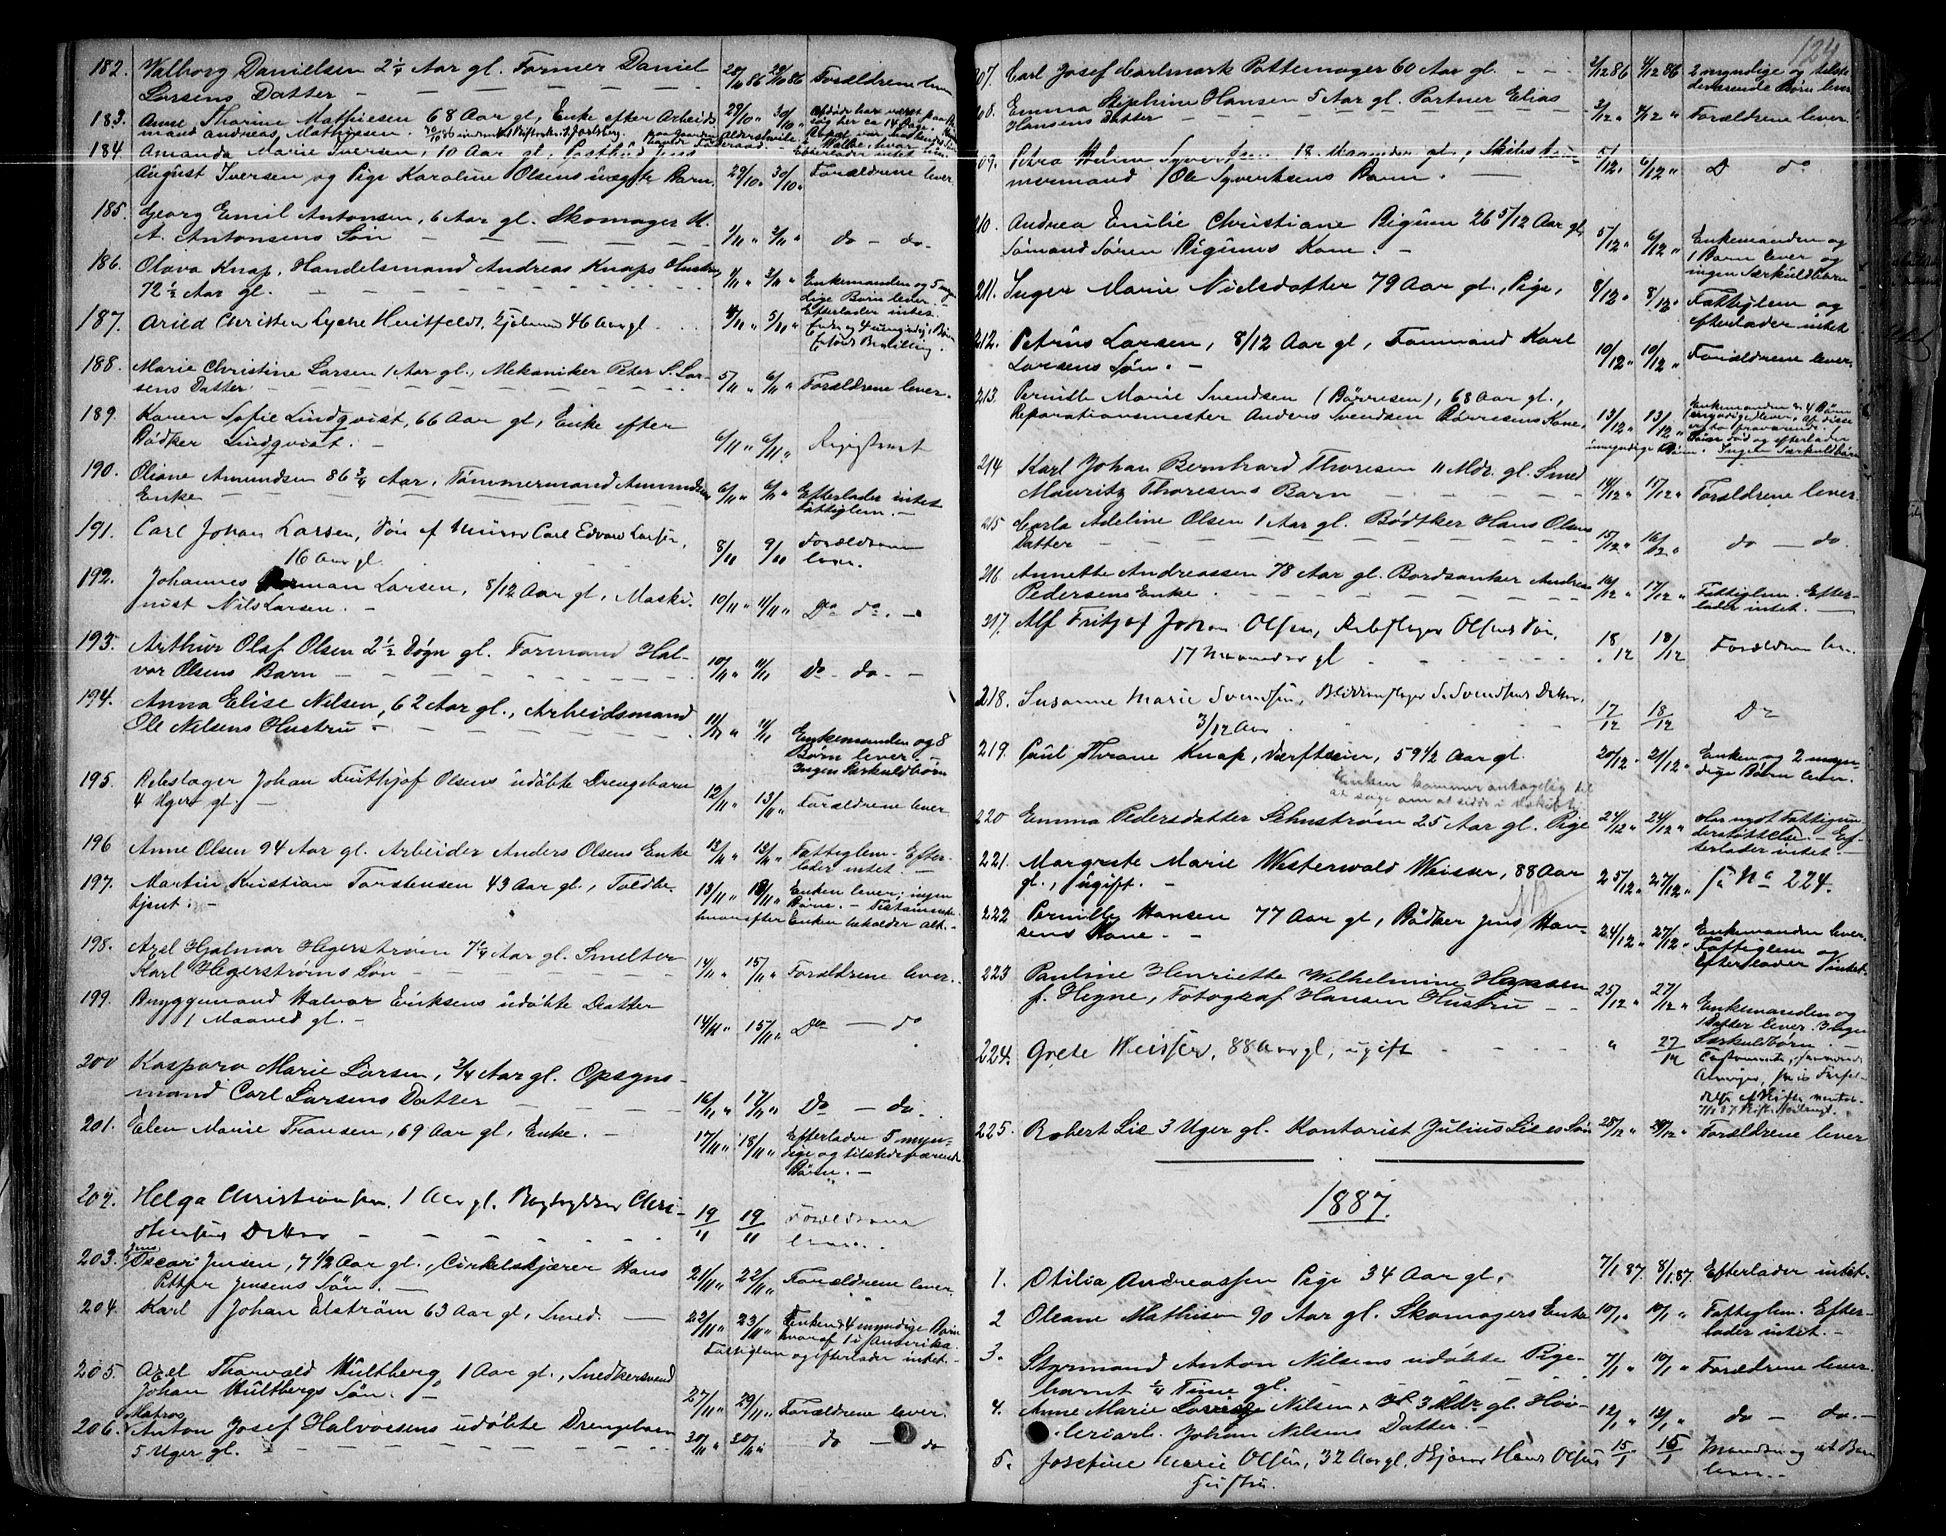 182. Valborg Danielsen 2 1/4 Aar gl. Former Daniel 28/10 86 29/10 86 Forældrene lever
Larsens Datter —
183. Anne Thorine Mathiesen 68 Aar gl, Enke efter Arbeids 29/10 " 30/10 "
mand Andreas Mathiesen.
184. Amanda Marie Iversen, 10 Aar gl, Efterlader intet
August Iversen og Pige Karoline Olsens uægte Barn. 29/10 " 30/10 " Forældrene lever.
185. Georg Emil Antonsen, 6 Aar gl. Skomager M.
A. Antonsens Søn — 1/11 " 2/11 " do — do.
186. Olava Knap, Handelsmand Andreas Knaps Hustru 1/11 " 3/11 " Enkemanden og 5 myn
72 1/2 Aar gl. — dige Børn lever.
187. Arild Christen Lycke Hvitfeldt, 46 Aar gl. 4/11 " 5/11 " Efterlader intet.
188. Marie Christine Larsen 1 Aar gl., Mekaniker Peter S. Lar-
sens Datter. — 5/11 " 6/11 " Forældrene lever.
189. Karen Sofie Lindqvist, 66 Aar gl, Enke efter
Bødker Lindqvist. — 6/11 " 6/11 " Registreret
190. Oliane Amundsen 86 3/4 Aar, Tømmermand Amundsens 6/11 " 6/11 " Efterlader intet
Enke — Fattiglem. —
191. Carl Johan Larsen, Søn af Murer Carl Edvard Larsen, 8/11 9/11 Forældrene
16 Aar gl. lever.
192. Johannes Larsen, 8/12 Aar gl, Maski-
nist Nils Larsen. — 10/11 " 11/11 " Do do. —
193. Arthur Olaf Olsen 2 1/2 Døgn gl. Formand Hal-
vor Olsens Barn — 10/11 " 11/11 Do — do. —
194. Anna Elise Nilsen, 62 Aar gl., Arbeidsmand
Ole Nilsens Hustru — 11/11 " 11/11 Enkemanden og 8
Børn lever. —
Ingen Særkuldbørn
195. Rebslager Johan Frithjof Olsens udøbte Drengebarn
4 Uger gl. — 12/11 " 13/11 " Forældrene lever
196 Anne Olsen 94 Aar gl. Arbeider Anders Olsens Enke 12/11 " 13/11 " Fattiglem. Efter-
lader intet —
197. Martin Kristian Torstensen 43 Aar gl., Toldbe- 13/11 " 13/11 " Enken lever; ingen
tjent. — Børn. — Testamente
hvorefter Enken beholder alt. —
198. Axel Hjalmar Hegerstrøm 7 1/4 Aar gl. Smelter
Karl Hegerstrøms Søn — 14/11 " 15/11 " Forældrene lever.
199. Bryggemand Halvor Eriksens udøbte Datter
1 Maaned gl. — 14/11 " 15/11 " Do — do
200 Kaspara Marie Larsen, 3/4 Aar gl. Opsyns-
mand Carl Larsens Datter — 16/11 " 17/11 " Do — do.
201. Elen Marie Fransen, 69 Aar gl, Enke. — 17/11 " 18/11 " Efterlader 5 myn-
dige og tilstedeværende
Børn. —
202. Helga Christiansen. 1 Aar gl. Chri- 19/11 19/11 Forældrene
stiansens Datter — lever.
203. Oscar Jensen, 7 1/2 Aar gl., Cirkelskjærer Hans
Petter Jensens Søn. — 21/11 " 22/11 " Forældrene lever.
204. Karl Johan Elstrøm 63 Aar gl, Smed. — 22/11 " 23/11 " Enken & 4 myndige Børn
hvoraf 1 i Amerika.
Fattiglem og efterlader intet. —
205. Axel Thorvald Hultberg, 1 Aar gl., Snedkersvend
Johan Hultbergs Søn. — 27/11 " 29/11 " Forældrene lever.
Matros
206. Anton Josef Halvorsens udøbte Drengebarn
5 Uger gl. — 30/11 " 30/11 " do — do
124
207. Carl Josef Carlmark Pottemager 60 Aar gl. — 2/12 86 4/12 86 2 myndige og tilste
deværende Børn lever
208. Emma Stephine Hansen 5 Aar gl. Portner Elias
Hansens Datter — 3/12 " 4/12 " Forældrene lever.
209. Petra Syvertsen 18 Maaneder gl,
mermand Ole Syvertsens Barn. — 5/12 " 6/12 " D do
210. Andrea Emilie Christiane Bigum 26 5/12 Aar gl,
Sømand Søren Bigums Kone. — 5/12 " 6/12 " Enkemanden og
1 Barn lever og
ingen Særkuldbørn
211. Inger Marie Nielsdatter 79 Aar gl., Pige, 8/12 " 8/12 " Fattiglem og
efterlader intet
212. Petrus Larsen, 8/12 Aar gl, Formand Karl
Larsens Søn. — 10/12 " 10/12 " Forældrene lever.
213. Pernille Marie Svendsen (Børresen), 68 Aar gl.,
Reparationsmester Anders Svendsen Børresens Kone, 13/12 " 13/12 " Enkemanden & 4 Børn
umyndige Børn. Ingen Særkuldbørn
214 Karl Johan Bernhard Thoresen 11 Mdr. gl. Smed
Mauritz Thoresens Barn — 14/12 " 17/12 " Forældrene lever.
215 Carla Adeline Olsen 1 Aar gl. Bødtker Hans Olsens
Datter — 15/12 " 16/12 " do — do.
216 Annette Andreassen 78 Aar gl. Andreas
Pedersens Enke. — 16/12 " 17/12 " Fattiglem. Efter-
lader intet. —
217. Alf Fritjof Johan Olsen, Rebslager Olsens Søn, 18/12 18/12 Forældrene lever.
17 Maaneder gl
218. Susanne Marie Svendsen, Blikkenslager S. Svendsens Datter, 17/12 18/12 Do
3/12 Aar
219. Paul Thrane Knap, Værftseier, 59 1/2 Aar gl. 20/12 " 21/12 " Enken og 2 myn-
dige Børn lever.
Enken kommer antagelig til
at søge om at sidde i uskiftet
220 Emma Pedersdatter Sehnstrøm 25 Aar gl. Pige 24/12 " 24/12 " Har nydt Fattigun
derstøttelse. — Ef-
terlader intet. —
221. Margrete Marie Westerwald Weisser, 88 Aar 25/12 " 27/12 " No 224.
gl., ugift. —
222 Pernille Hansen 77 Aar gl, Bødker Jens Han-
sens Kone. — 24/12 " 27/12 " Enkemanden lever.
Fattiglem og
Efterlader intet
223 Pauline Henriette Wilhelmine Hanssen
f. Hegne, Fotograf Hansen Hustru — 25/12 " 27/12 " Enkemanden og
1 Datter lever. Ingen
Særkuldbørn. —
224. Grete Weisser, 88 Aar gl, ugift — " 27/12
225. Robert Lie 3 Uger gl. Kontorist Julius Lies Søn 28/12 " 29/12 " Forældrene lever
1887.
1. Otilia Andreassen Pige 34 Aar gl, 7/1 87. 8/1 87. Efterlader intet.
2 Oleane Mathisen 90 Aar gl. Skomagers Enke 10/1 " 10/1 " Fattiglem. Efter-
lader intet. —
3. Styrmand Anton Nilsens udøbte Pige-
barn 1/4 Time gl. 7/1 " 10/1 " Forældrene lever.
4. Anne Marie Lovise Nilsen, 3 Mdr gl. Høv-
leriarb. Johan Nilsens Datter. — 12/1 " 12/1 " do — do. —
5. Josefine Marie Olsen, 32 Aar gl. Hans Olsens 15/1 15/1 Manden og et Barn
Hustru. lever.